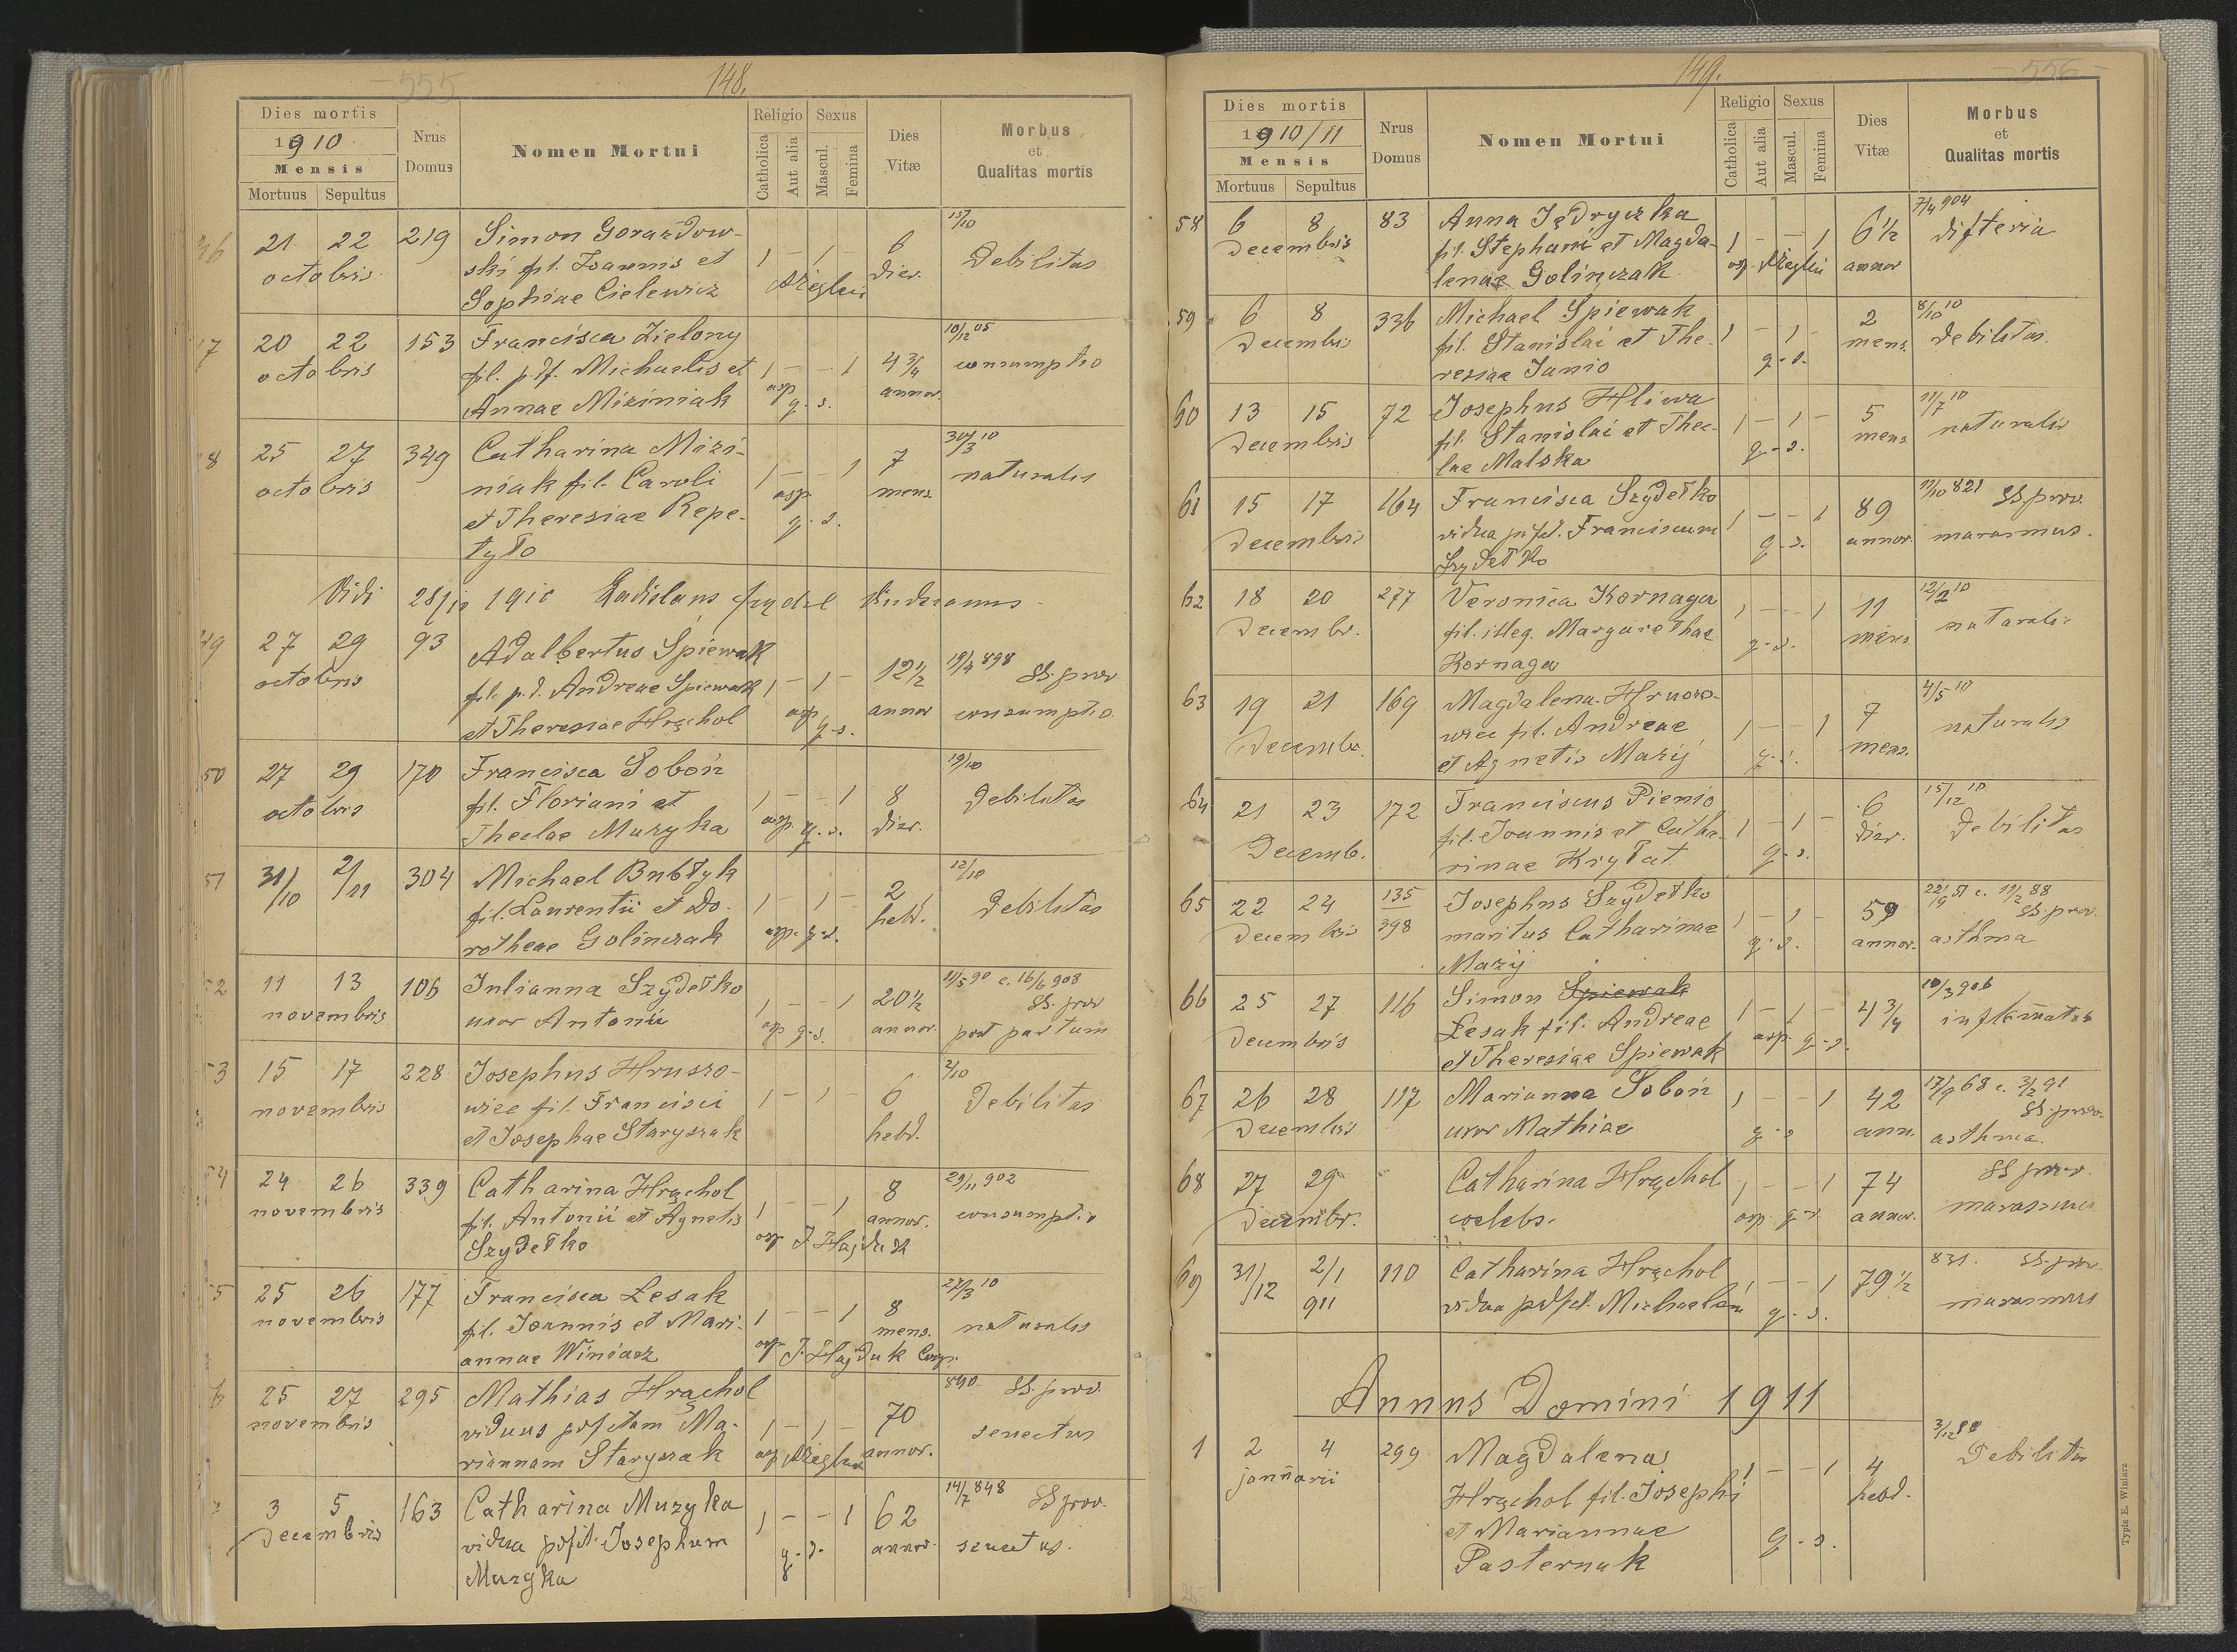 - 555
148.
Dies mortis
1910
Mensis
Mortuus Sepultus
Nrus
Domus
Nomen Mortui
Religio
Catholica
Aut alia
Sexus
Mascul.
Femina
Dies
Vitæ
Morbus
et
Qualitas mortis
46 21 22 219 Simon Gorazdow- 13/10
octobris ski fil. Joannis et 1 - 1 - 6 Debilitas
Sophiae Cielewicz dier.
47 20 22 153 Francisca Zielony 10/12 05
octobris fil. p.df. Michaelis et 1 - - 1 4 3/4 consumptio
Annae Miziniak asp q. s. annor.
48 25 27 349 Catharina Mizi- 30/3 10
octobris niak fil. Caroli 1 - 1 7 naturalis
et Theresiae Repe- asp q. s. mens.
tyło
Vidi 28/10 1910 Ladislaus
49 27 29 93 Adalbertus Śpiewak 12 1/2 19/4 898 SS. prov
octobris fil. p.d. Andreae Spiewak 1 - 1 - annor consumptio
et Theresiae Hrąchol asp q. s.
50 27 29 170 Francisca Soboń 19/10
octobris fil. Floriani et 1 - - 1 8 Debilitas
Theclae Muzyka asp. q. s. dier.
51 31/10 2/11 304 Michael Bubłyk 12/10
fil. Laurentii et Do- 1 - 1 - 2 Debilitas
rotheae Golinczak asp. q. s. hebd.
52 11 13 106 Julianna Szydełko 11/5 90 c. 16/6 908
novembris uxor Antonii 1 - - 1 20 1/2 SS. prov
asp q. s. annor. post partum
53 15 17 228 Josephus Hruszo- 2/10
novembris wiec fil. Francisci 1 - 1 - 6 Debilitas
et Josephae Staryszak hebd.
54 24 26 339 Catharina Hrąchol 29/11 902
novembris fil. Antonii et Agnetis 1 - 1 8 annor. consumptio
Szydełko asp J. Hajduk
55 25 26 177 Francisca Lesak 27/3 10
novembris fil. Joannis et Mari- 1 - - 1 8 mens. naturalis
annae Winiarz asp. J. Hajduk Coop.
56 25 27 295 Mathias Hrąchol 840 SS. prov.
novembris viduus p.df. ctam Ma- 1 - 1 - 70 senectus
riannam Staryszak asp annor.
3 5 163 Catharina Muzyka 14/7 848 SS prov.
decembris vidua p.df. Josephum 1 - - 1 62 senectus.
Muzyka q. s. annor.
149.
- 556 -
Dies mortis
1910/11
Mensis
Mortuus Sepultus
Nrus
Domus
Nomen Mortui
Religio
Catholica
Aut alia
Sexus
Mascul.
Femina
Dies
Vitæ
Morbus
et
Qualitas mortis
58 6 8 83 Anna Jędryczka 7/4 904
decembris fil. Stephani et Magda- 1 - - 1 6 1/2 difteria
lenae Golinczak asp. annor
59 6 8 336 Michael Spiewak 8/10 10
decembris fil. Stanislai et The- 1 - 1 - 2 mens. debilitas
resiae Janio q. s.
60 13 15 72 Josephus Hliwa 11/7 10
decembris fil. Stanislai et Thec- 1 - 1 - 5 mens. naturalis
lae Malska q. s.
61 15 17 164 Francisca Szydełko 11/10 821 SS. prov.
decembris vidua p.df. Franciscum 1 - - 1 89 annor. marasmus.
Szydełko q. s.
62 18 20 277 Veronica Kornaga 12/2 10
decembr. fil. illeg. Margarethae 1 - - 1 11 mens naturalis
Kornaga q. s.
63 19 21 169 Magdalena Hruszo- 4/5 10
decembr. wiec fil. Andreae 1 - - 1 7 mens. naturalis
et Agnetis Mazij q. s.
64 21 23 172 Franciscus Pienio 15/12 10
decemb. fil. Joannis et Catha- 1 - 1 - 6 dier. debilitas
rinae Kryłat q. s.
65 22 24 135/398 Josephus Szydełko 22/9 51 c. 11/2 88
decembris maritus Catharinae 1 - 1 - 59 SS. prov.
Mazij q. s. annor. asthma
66 25 27 116 Simon Spiewak 10/3 906
decembris Lesak fil. Andreae 1 - 1 - 4 3/4
et Theresiae Spiewak asp. q. s.
67 26 28 117 Marianna Soboń 17/9 68 c. 3/2 91
decembris uxor Mathiae 1 - - 1 42 SS. prov.
q. s. ann. asthma.
68 27 29 Catharina Hrąchol SS prov.
decembr. coelebs. 1 - - 1 74 marasmus
asp q. s. annor.
69 31/12 2/1 110 Catharina Hrąchol 831. SS. prov.
911 vidua p.df. Michaelem 1 - - 1 79 1/2 marasmus
q. s.
Annus Domini 1911
1 2 4 299 Magdalena
januarii Hrąchol fil. Josephi 1 - - 1 4 Debilitas
et Mariannae hebd.
Pasternak q. s.
Typis E. Winiarz